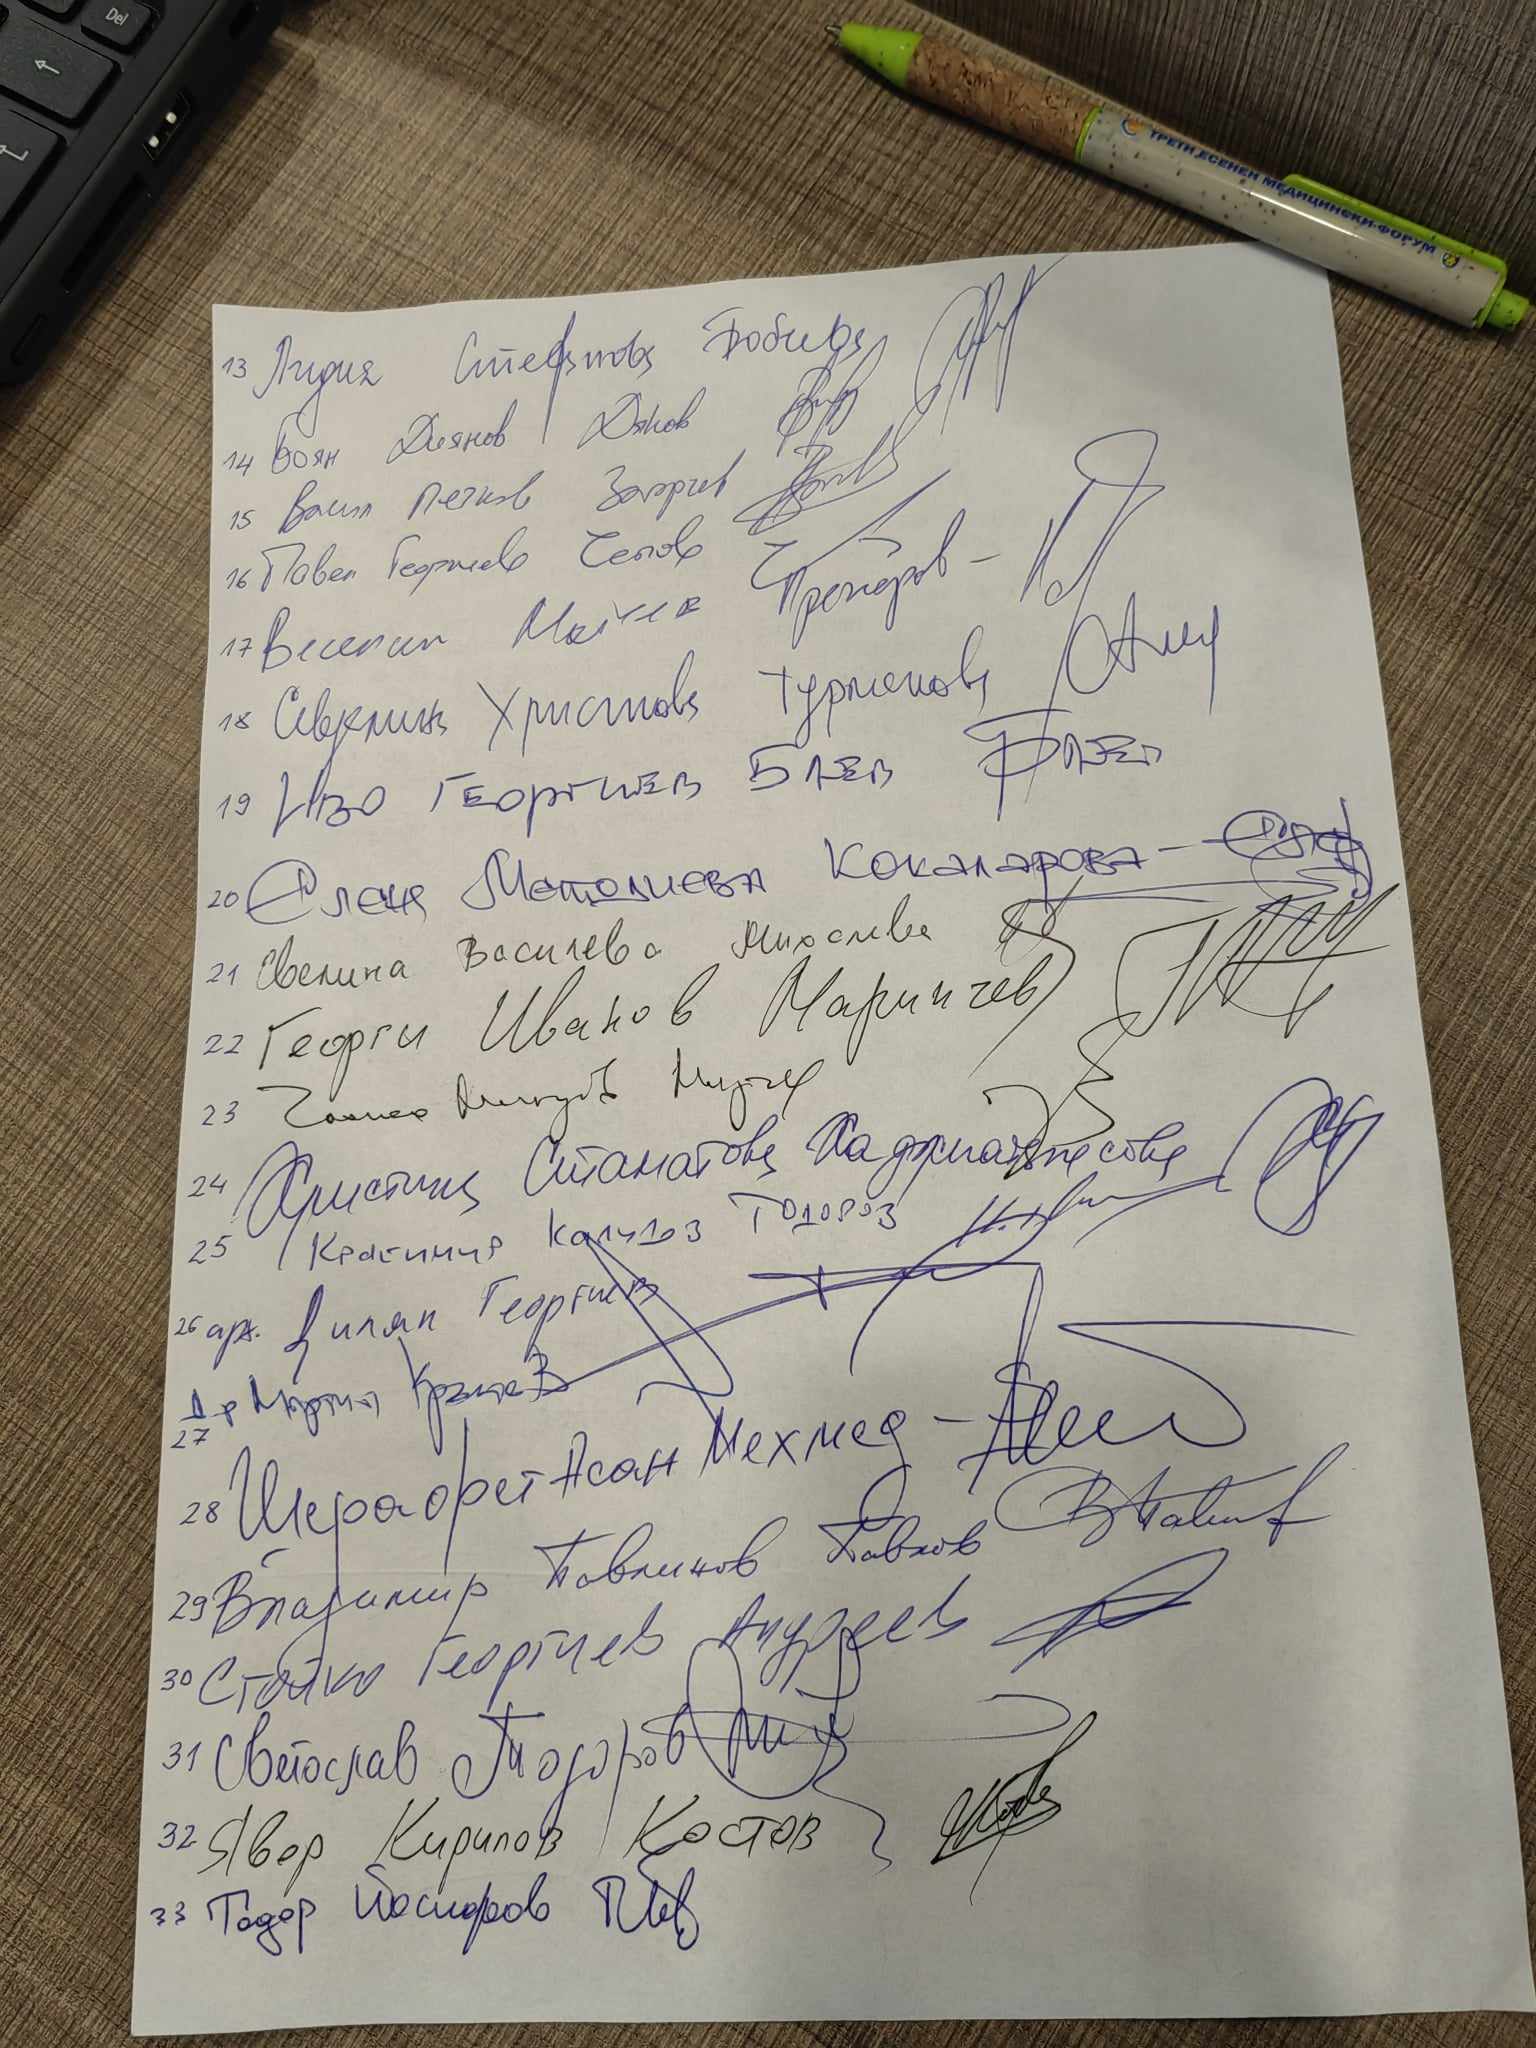 Del
ТРЕТИ ЕСЕНЕН МЕДИЦИНСКИ ФОРУМ
13 Лидия Стефанова
14 Боян Диянов Дяков
15 Васил Петков Захариев
16 Павел Георгиев
17 Веселин
18 Евелина Христова Турманова
19 Иво Георгиев Баев
20 Елена Методиева Кокаларова -
21 Евелина Василева Михалева
22 Георги Иванов Маринчев
23
24 Христина Стаматова
25 Красимир Калудов Тодоров
26 арх. Лилян Георгиев
Д-р Мартин
27
28 Шерафет Асан Мехмед -
29 Владимир Павлинов Павлов
30 Стойко Георгиев Андреев
31 Светослав Тодоров
32 Явор Кирилов Костов
33 Тодор